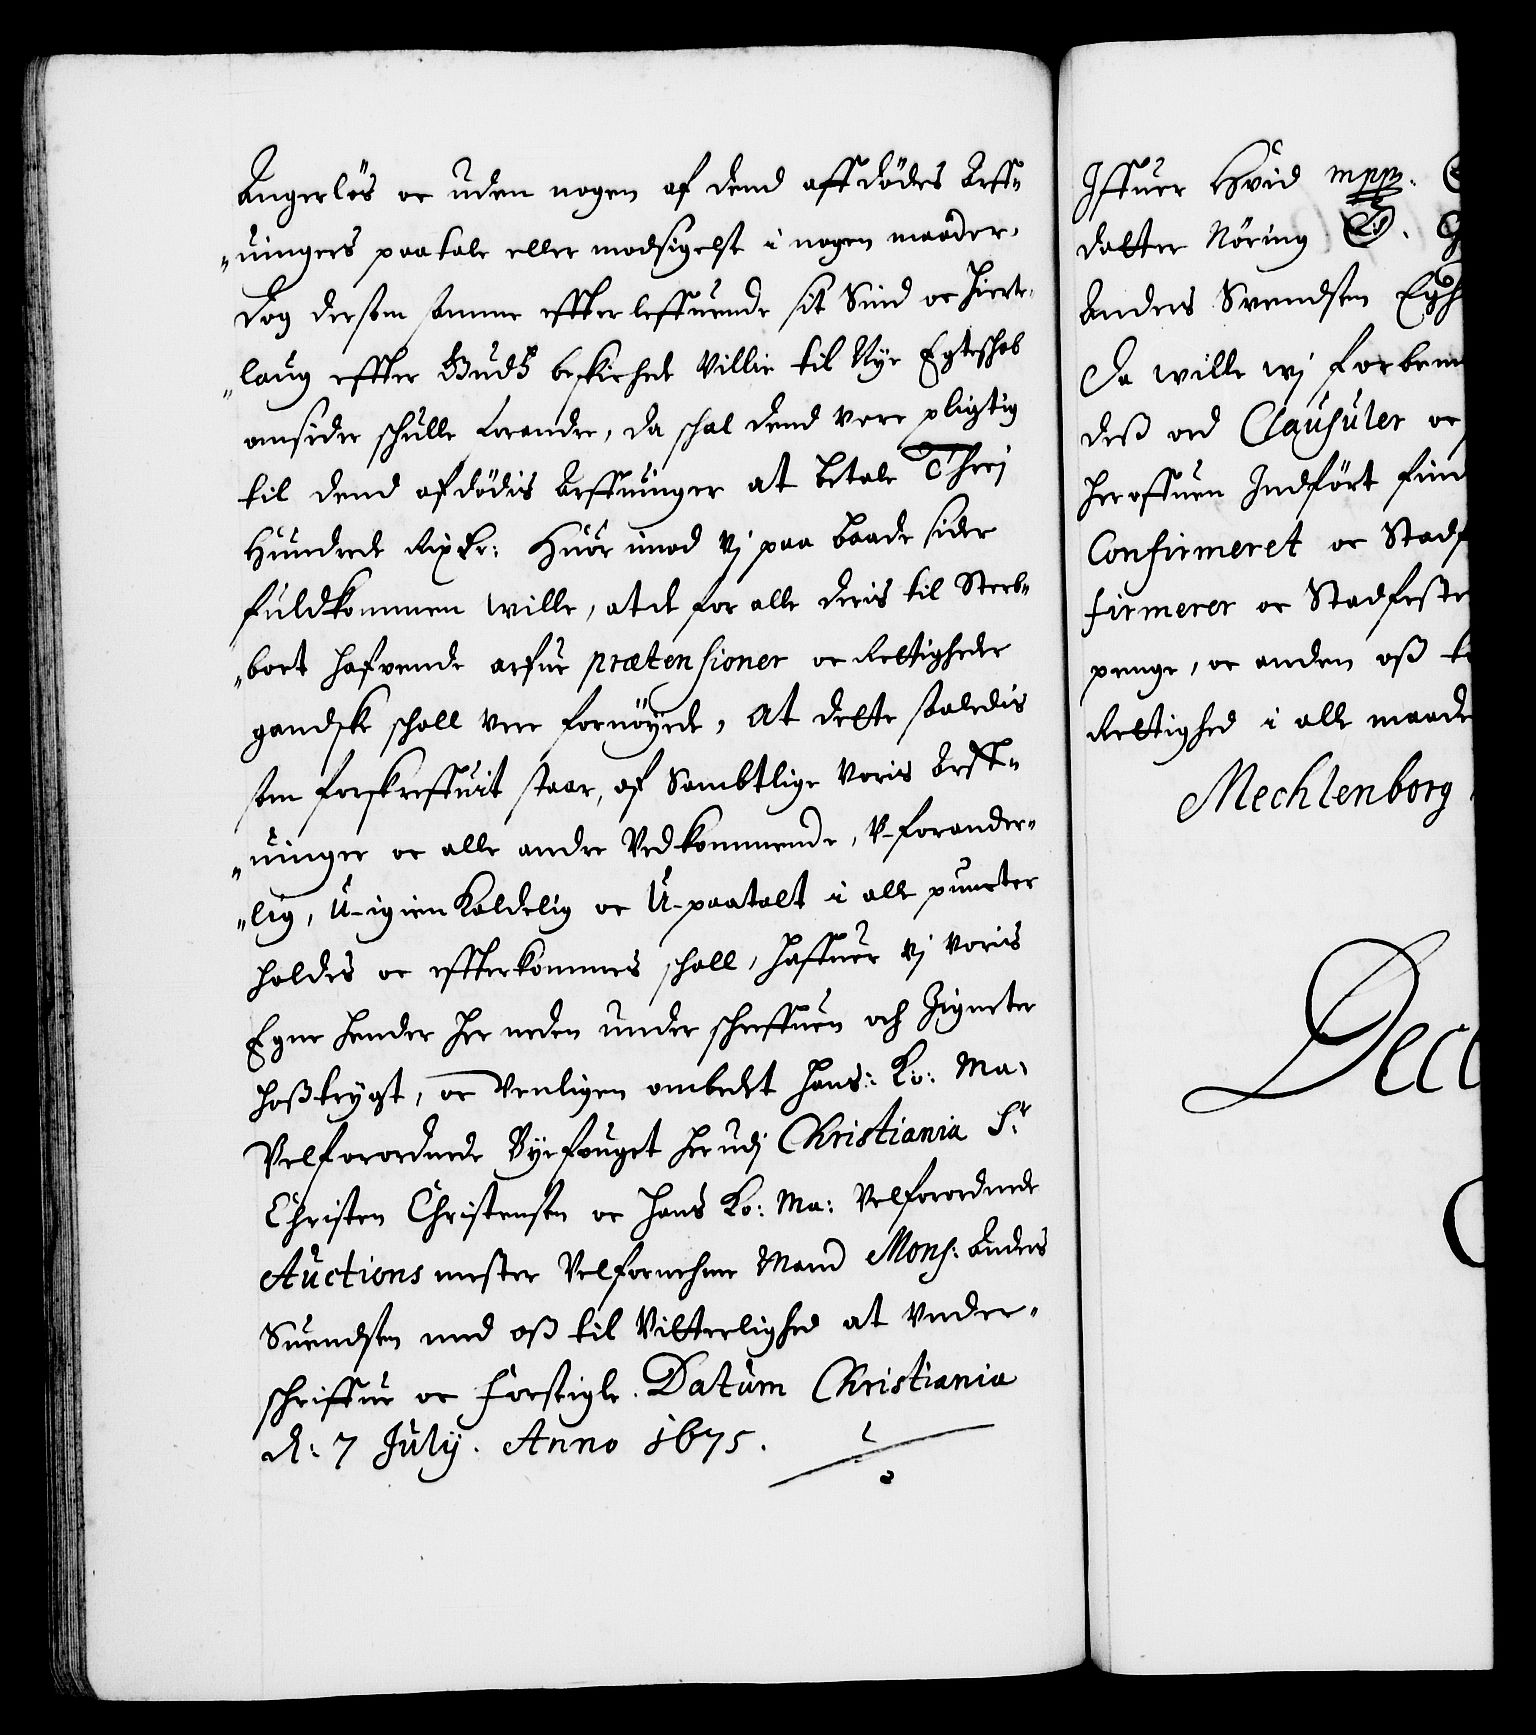 Angerløs oc uden nogen af dend aff dödes Arff„
„uingers paatale eller modsigelse i nogen maader.
Dog dersom samme effterleffuende sit Sind oc Hierte„
„laug effter Gudß beskichede Villie til Nye Egteschab
omsider schulle forandre, da schal dend vere pligtig
til dend afdödis Arffuinger at betale Threj
Hundrede Rixdr: Huor imod Vj paa baade sider
fuldkommen wille, at de for alle deris til Sterb„
„boet hafvende arfue prætensioner oc Rettigheder
gandske schall vere fornöyede, At dette saaledis
som forskreffuit staar, af Sambtlige voris Arff„
„uinger oc alle andre Vedkommende, V-forander„
„lig, U-igienkaldelig oc U-paatalt i alle puncter
holdes oc effterkommes schall, haffuer Vj voris
Egne hender her neden under schreffuen och Zigneter
hoßtrygt, oc Venligen ombedet Hans: Ko: Ma:
Velforordnede Byefouget her udj Christiania Sr.
Christen Christensen oc Hans Ko: Ma: Velforordnede
Auctions mester Velfornehme Mand Mons: Anders
Suendsen med oß til Vitterlighed at Vnder„
schriffue oc forseigle. Datum Christiania
d: 7 July. Anno 1675.
Iffuer Hvid mpp.
datter Nöring LS.
Anders Svendsen
Da wille wj forbem
deß ord Clausuler oc
her offuen Indfört fin
Confirmeret oc Stadf
firmerer oc Stadfeste
penge, oc anden oß
Rettighed i alle maade
Mechlenborg
Dece